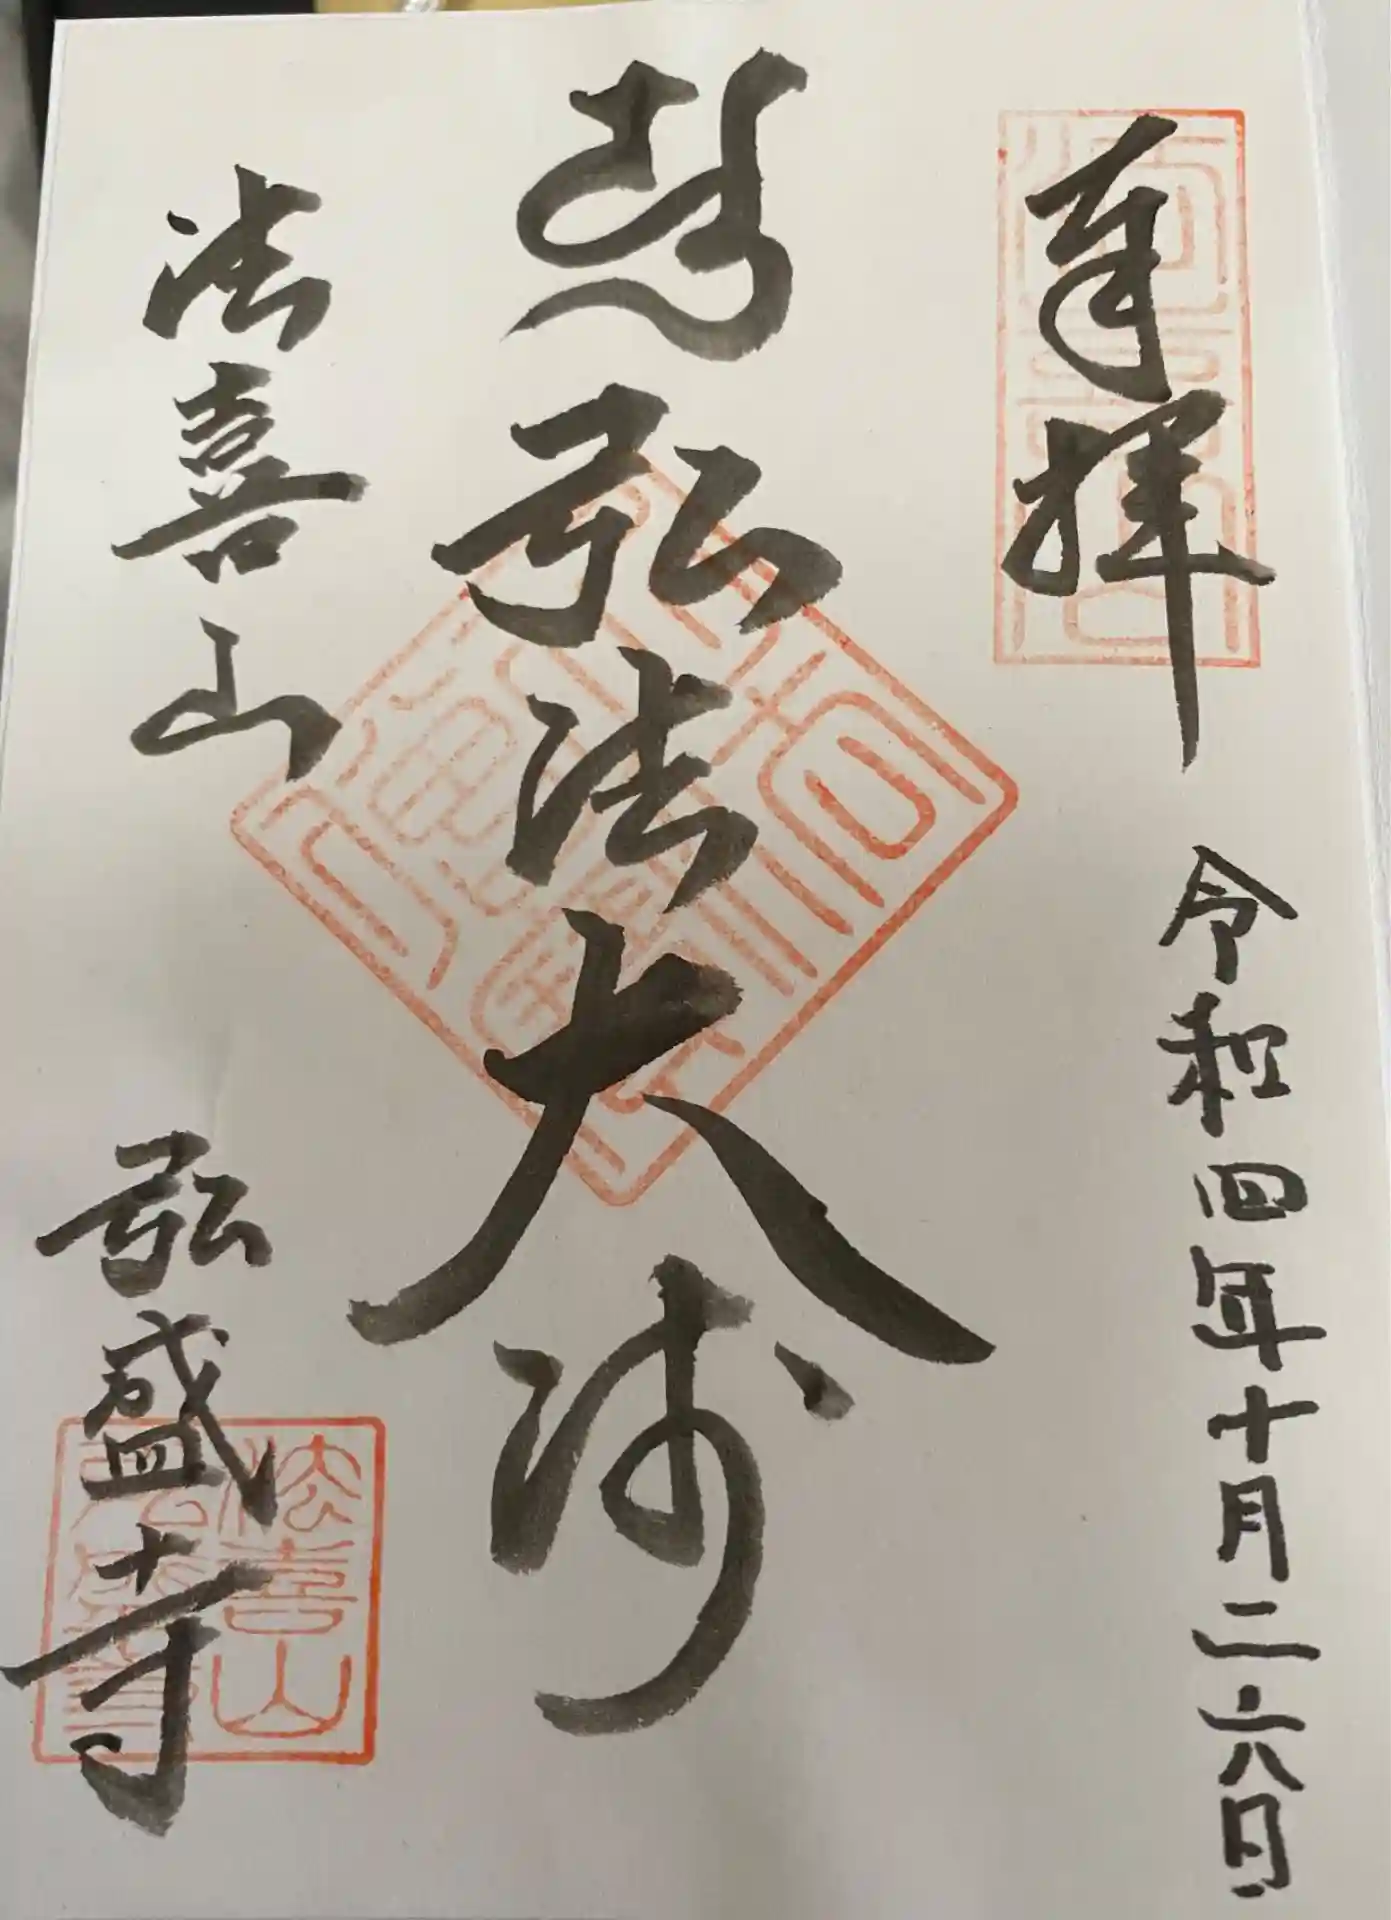 奉拝
令和四年十月二六日
弘法大師
法喜山
弘盛寺
法喜山
弘盛寺